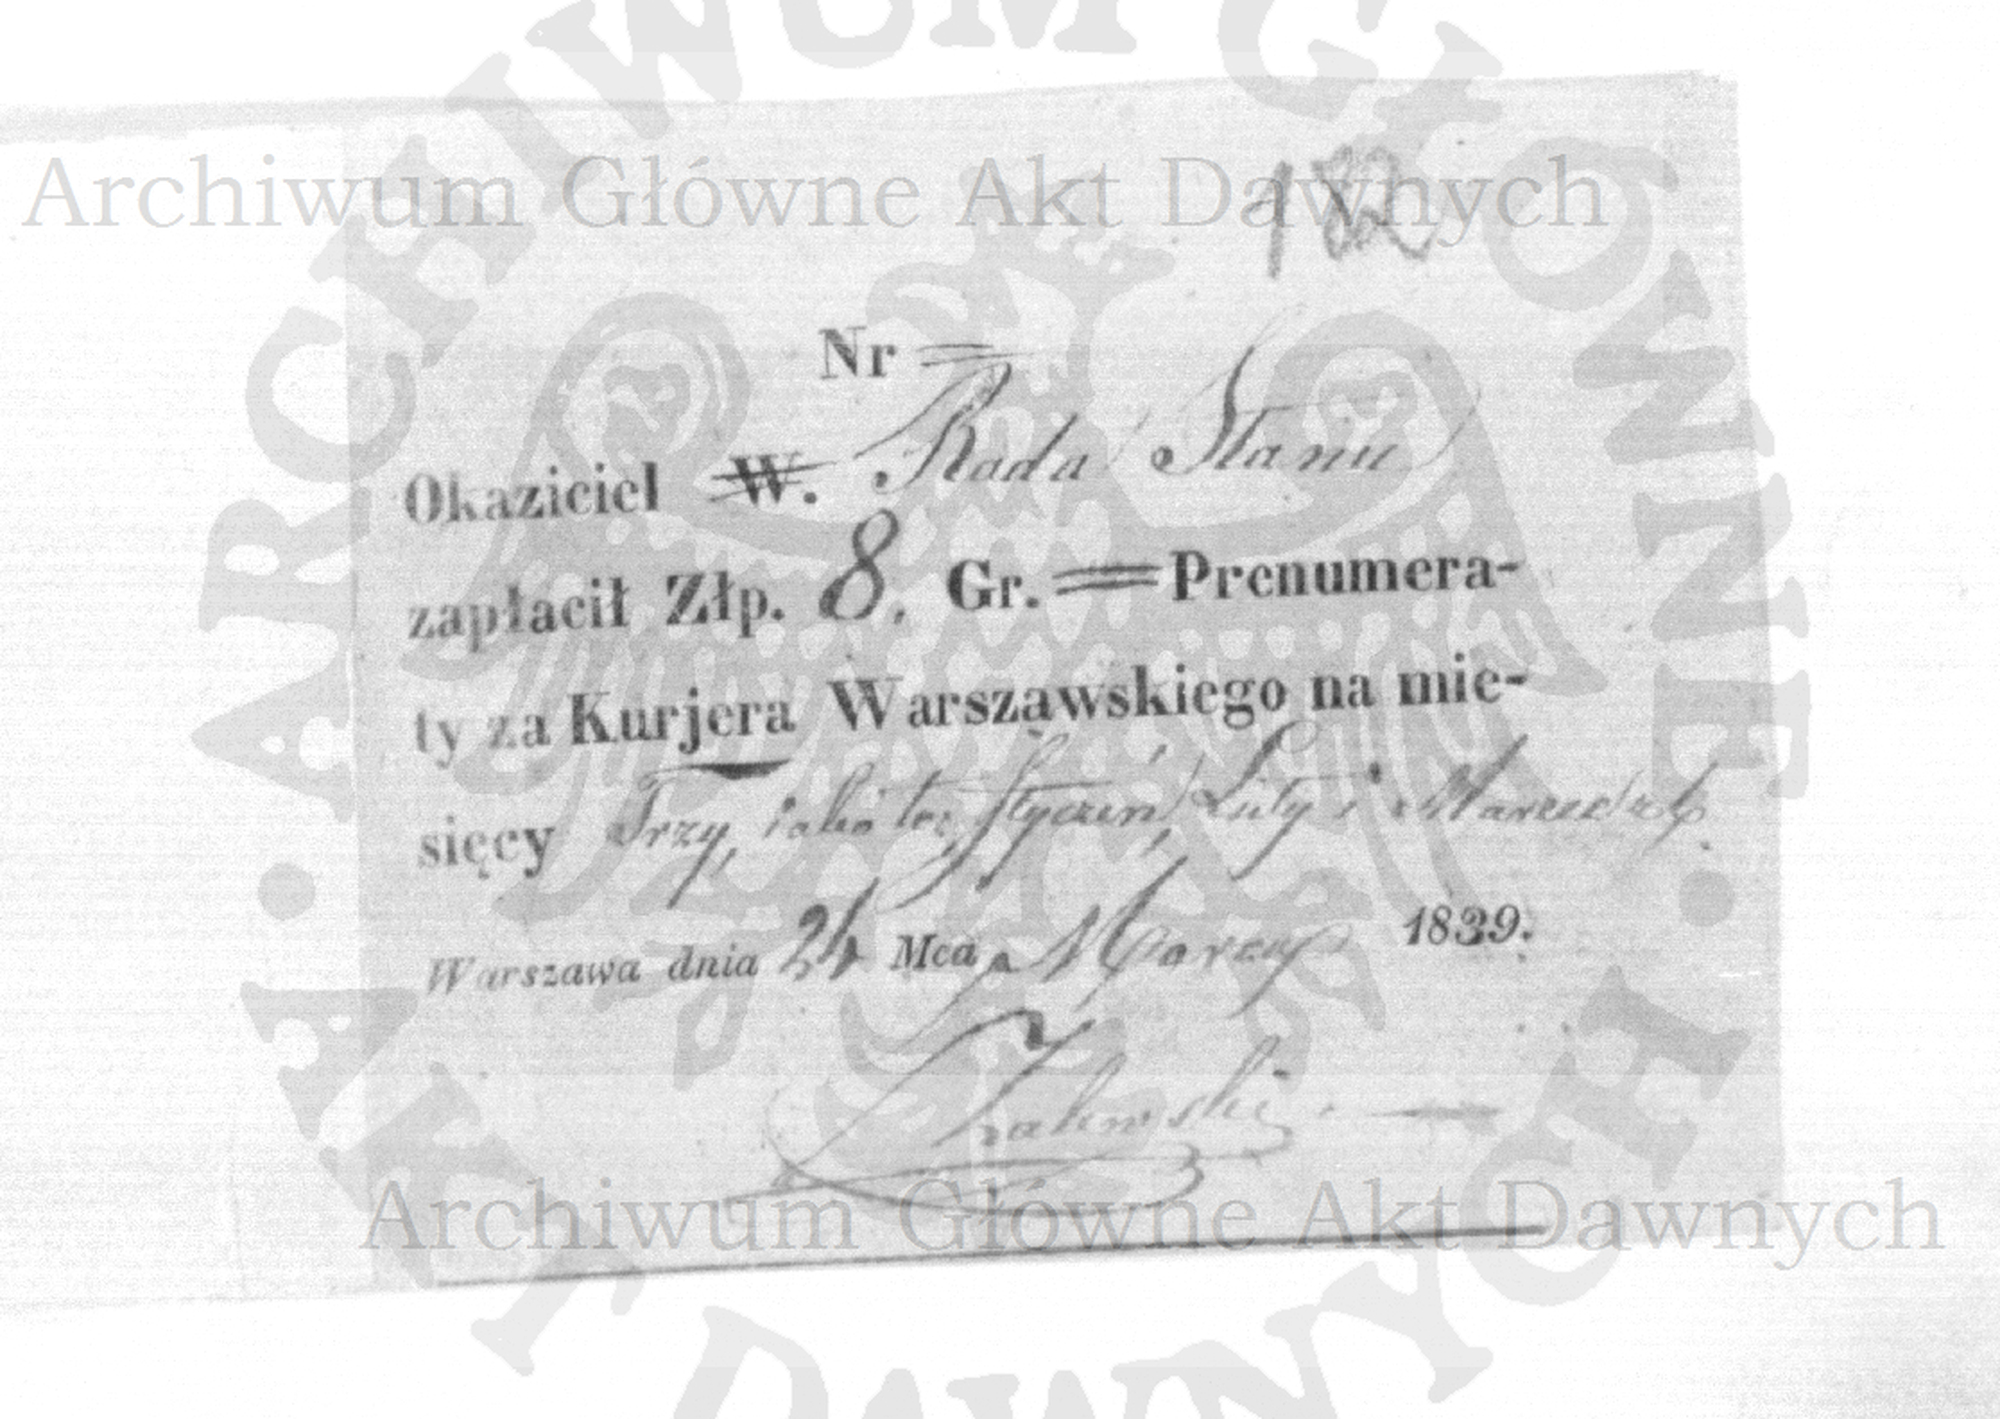 Archiwum Główne Akt Dawnych
Nr =
Okaziciel W. Rada Stanu
zapłacił Złp. 8. Gr. = Prenumera-
ty za Kurjera Warszawskiego na mie-
sięcy Trzy, iako to: Styczeń, Luty i Marzec
Warszawa dnia 24 Mca Marca 1839.
Zalewski
Archiwum Główne Akt Dawnych
ARCHIWUM GŁÓWNE
AKT DAWNYCH